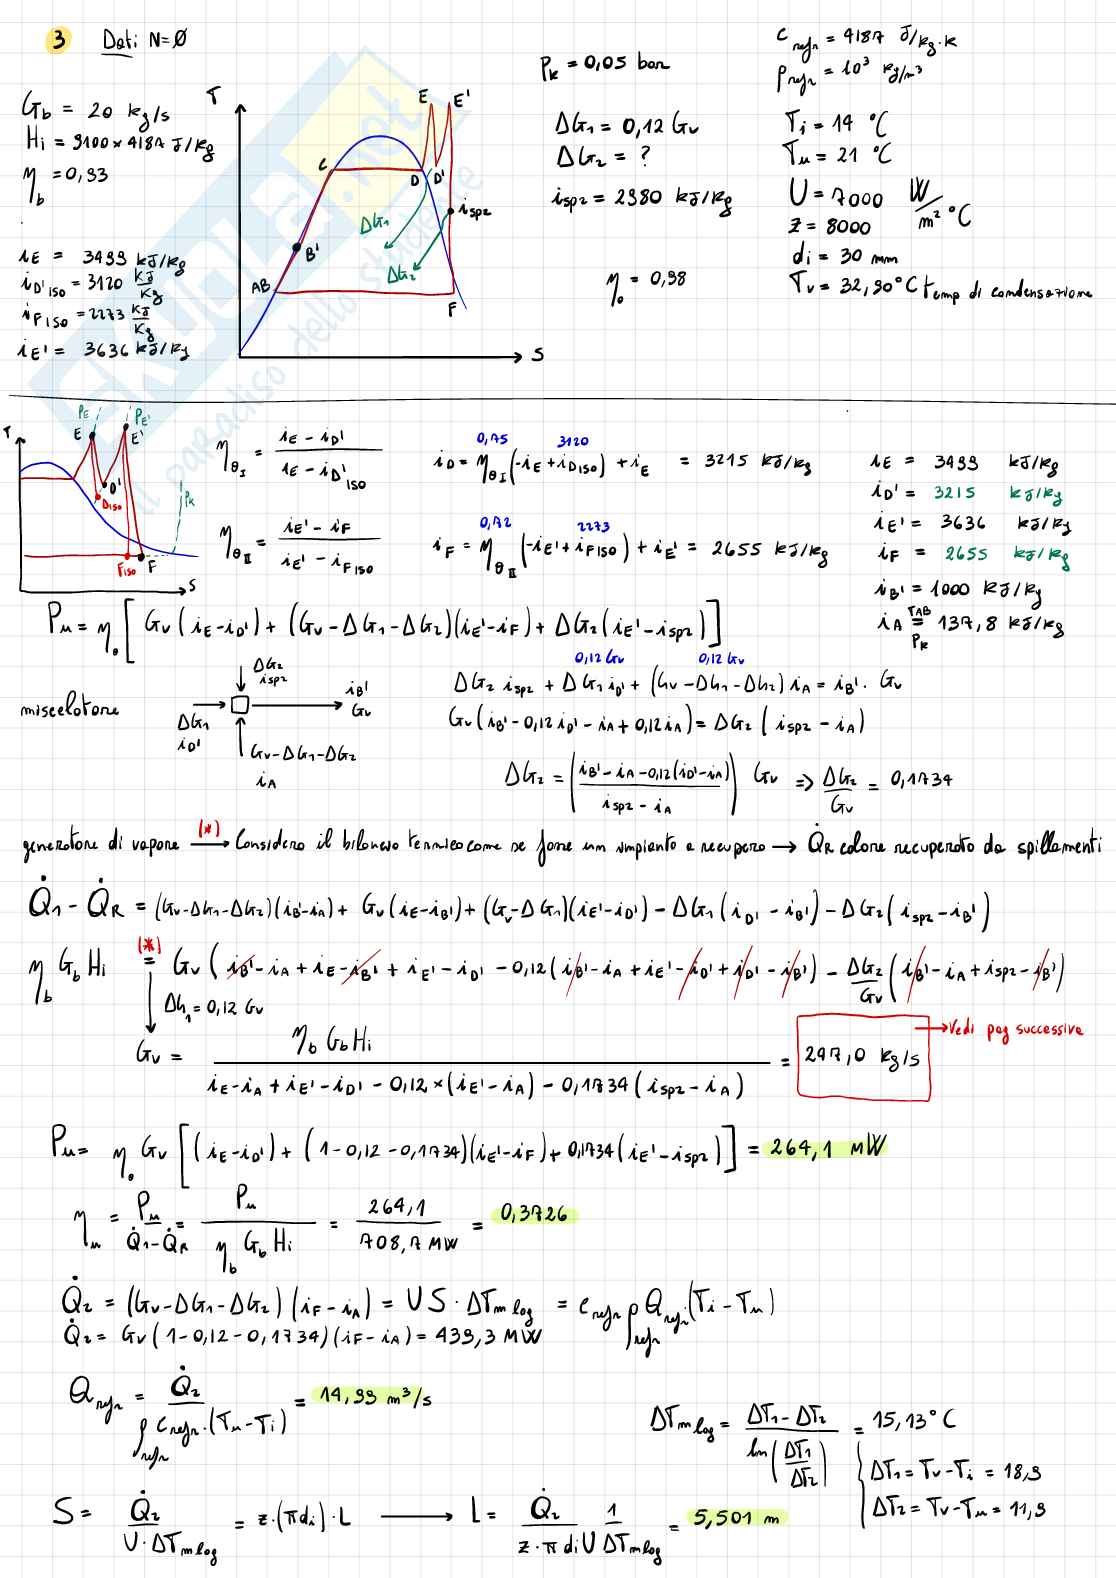 3 Dati N=Ø
G_b = 20 kg/s
H_i = 9100×4187 J/kg
η_b = 0,93
i_E = 3499 kJ/kg
i_D' iso = 3120 kJ/kg
i_F iso = 2273 kJ/kg
i_E' = 3636 kJ/kg
T
E E'
C
D D'
i_sp2
ΔG1
B'
ΔG2
AB
F
S
P_k = 0,05 bar
ΔG1 = 0,12 Gv
ΔG2 = ?
i_sp2 = 2980 kJ/kg
η_o = 0,98
C_refr = 4187 J/kg·K
ρ_refr = 10³ kg/m³
T_i = 14 °C
T_u = 21 °C
U = 7000 W/m² °C
z = 8000
d_i = 30 mm
T_v = 32,90°C temp di condensazione
SKUOLA.not
il paradiso dello studente
T
P_E P_E'
E E'
D'
D_iso
P_k
F_iso F
S
η_θI = (i_E - i_D')/(i_E - i_D'iso)
0,75 3120
i_D = η_θI (-i_E + i_D iso) + i_E = 3215 kJ/kg
η_θII = (i_E' - i_F)/(i_E' - i_F iso)
0,72 2273
i_F = η_θII (-i_E' + i_F iso) + i_E' = 2655 kJ/kg
i_E = 3499 kJ/kg
i_D' = 3215 kJ/kg
i_E' = 3636 kJ/kg
i_F = 2655 kJ/kg
i_B' = 1000 kJ/kg
i_A = TAB P_k 137,8 kJ/kg
P_u = η_o [Gv (i_E - i_D') + (Gv - ΔG1 - ΔG2)(i_E' - i_F) + ΔG2 (i_E' - i_sp2)]
miscelatore
ΔG2
i_sp2
ΔG1
i_D'
i_B'
Gv
Gv-ΔG1-ΔG2
i_A
0,12 Gv 0,12 Gv
ΔG2 i_sp2 + ΔG1 i_D' + (Gv - ΔG1 - ΔG2) i_A = i_B' · Gv
Gv (i_B' - 0,12 i_D' - i_A + 0,12 i_A) = ΔG2 (i_sp2 - i_A)
ΔG2 = ((i_B' - i_A - 0,12 (i_D' - i_A))/(i_sp2 - i_A)) Gv => ΔG2/Gv = 0,1734
generatore di vapore (*) → Considero il bilancio termico come se fosse un impianto a recupero → Q̇_R calore recuperato da spillamenti
Q̇1 - Q̇_R = (Gv-ΔG1-ΔG2)(i_B'-i_A) + Gv (i_E-i_B') + (Gv-ΔG1)(i_E'-i_D') - ΔG1 (i_D' - i_B') - ΔG2 (i_sp2 - i_B')
η_b G_b H_i (*) = Gv (i_B' - i_A + i_E - i_B' + i_E' - i_D' - 0,12 (i_B' - i_A + i_E' - i_D' + i_D' - i_B') - ΔG2/Gv (i_B' - i_A + i_sp2 - i_B')
ΔG1 = 0,12 Gv
Gv = η_b G_b H_i/(i_E - i_A + i_E' - i_D' - 0,12×(i_E' - i_A) - 0,1734 (i_sp2 - i_A)) = 247,0 kg/s
Vedi pag successiva
P_u = η_o Gv [(i_E - i_D') + (1-0,12-0,1734)(i_E'-i_F) + 0,1734 (i_E' - i_sp2)] = 264,1 MW
η_u = P_u/(Q̇1-Q̇_R) = P_u/(η_b G_b H_i) = 264,1/708,7 MW = 0,3726
Q̇2 = (Gv-ΔG1-ΔG2)(i_F-i_A) = U S · ΔT_m log = C_refr ρ_refr Q_refr (T_i - T_u)
Q̇2 = Gv (1-0,12-0,1734)(i_F-i_A) = 439,3 MW
Q_refr = Q̇2/(ρ_refr C_refr · (T_u - T_i)) = 14,99 m³/s
ΔT_m log = (ΔT1 - ΔT2)/ln(ΔT1/ΔT2) = 15,13°C
ΔT1 = T_v - T_i = 18,9
ΔT2 = T_v - T_u = 11,9
S = Q̇2/(U·ΔT_m log) = z·(π d_i)·L → L = Q̇2/(z·π d_i U) 1/ΔT_m log = 5,501 m